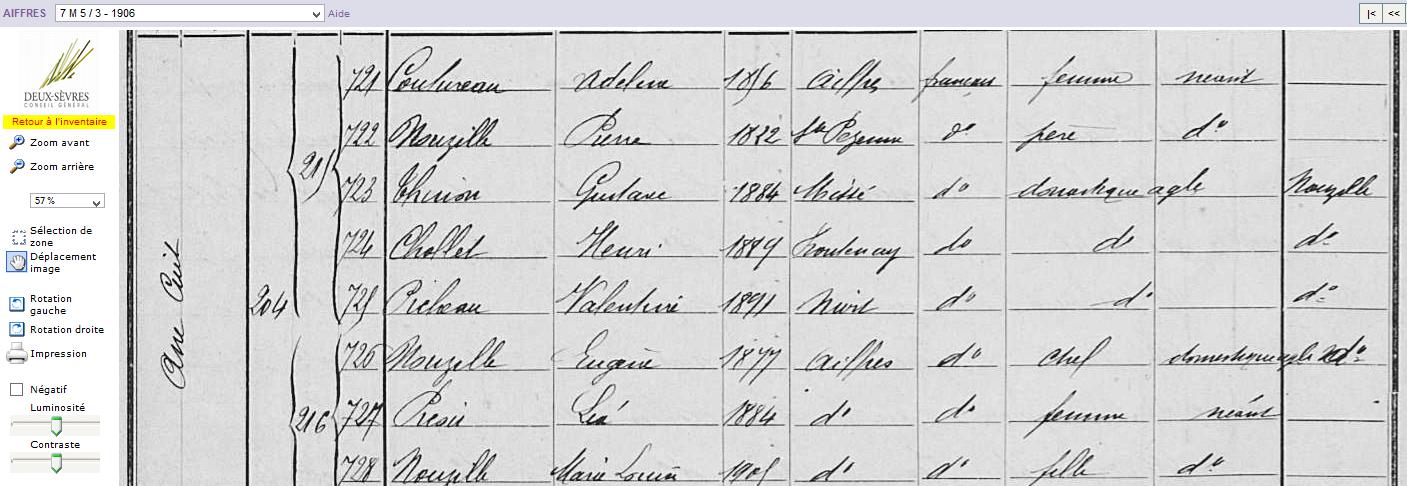 AIFFRES 7 M 5 / 3 - 1906 Aide |< <<
DEUX-SÈVRES
CONSEIL GÉNÉRAL
Retour à l'inventaire
Zoom avant
Zoom arrière
57 %
Sélection de
zone
Déplacement
image
Rotation
gauche
Rotation droite
Impression
Négatif
Luminosité
Contraste
204
215
216
721 Coutureau Adeline 1856 Aiffres française femme néant
722 Nouzille Pierre 1822 Ste Pezenne do père do
723 Thirion Gustave 1884 Missé do domestique agle Nouzille
724 Chollet Henri 1889 Frontenay do do do
725 Valentine 1891 Niort do do do
726 Nouzille Eugène 1877 Aiffres do chef domestique agle do
727 Léa 1884 do do femme néant
728 Nouzille Marie Louise 1905 do do fille do